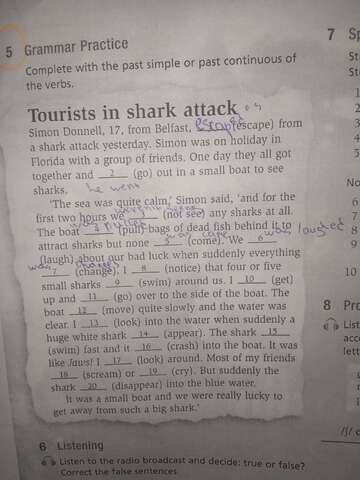 5 Grammar Practice
Complete with the past simple or past continuous of
the verbs.
Tourists in shark attack
Simon Donnell, 17, from Belfast, escaped (escape) from
a shark attack yesterday. Simon was on holiday in
Florida with a group of friends. One day they all got
together and 2 (go) out in a small boat to see
sharks. he went
'The sea was quite calm,' Simon said, 'and for the
first two hours we 3 (not see) any sharks at all.
The boat 4 (pull) bags of dead fish behind it to
attract sharks but none 5 (come). We 6
(laugh) about our bad luck when suddenly everything
7 (change). I 8 (notice) that four or five
small sharks 9 (swim) around us. I 10 (get)
up and 11 (go) over to the side of the boat. The
boat 12 (move) quite slowly and the water was
clear. I 13 (look) into the water when suddenly a
huge white shark 14 (appear). The shark 15
(swim) fast and it 16 (crash) into the boat. It was
like Jaws! I 17 (look) around. Most of my friends
18 (scream) or 19 (cry). But suddenly the
shark 20 (disappear) into the blue water.
It was a small boat and we were really lucky to
get away from such a big shark.'
6 Listening
Listen to the radio broadcast and decide: true or false?
Correct the false sentences.
7
1
2
3
4
5
6
8
9
10
8